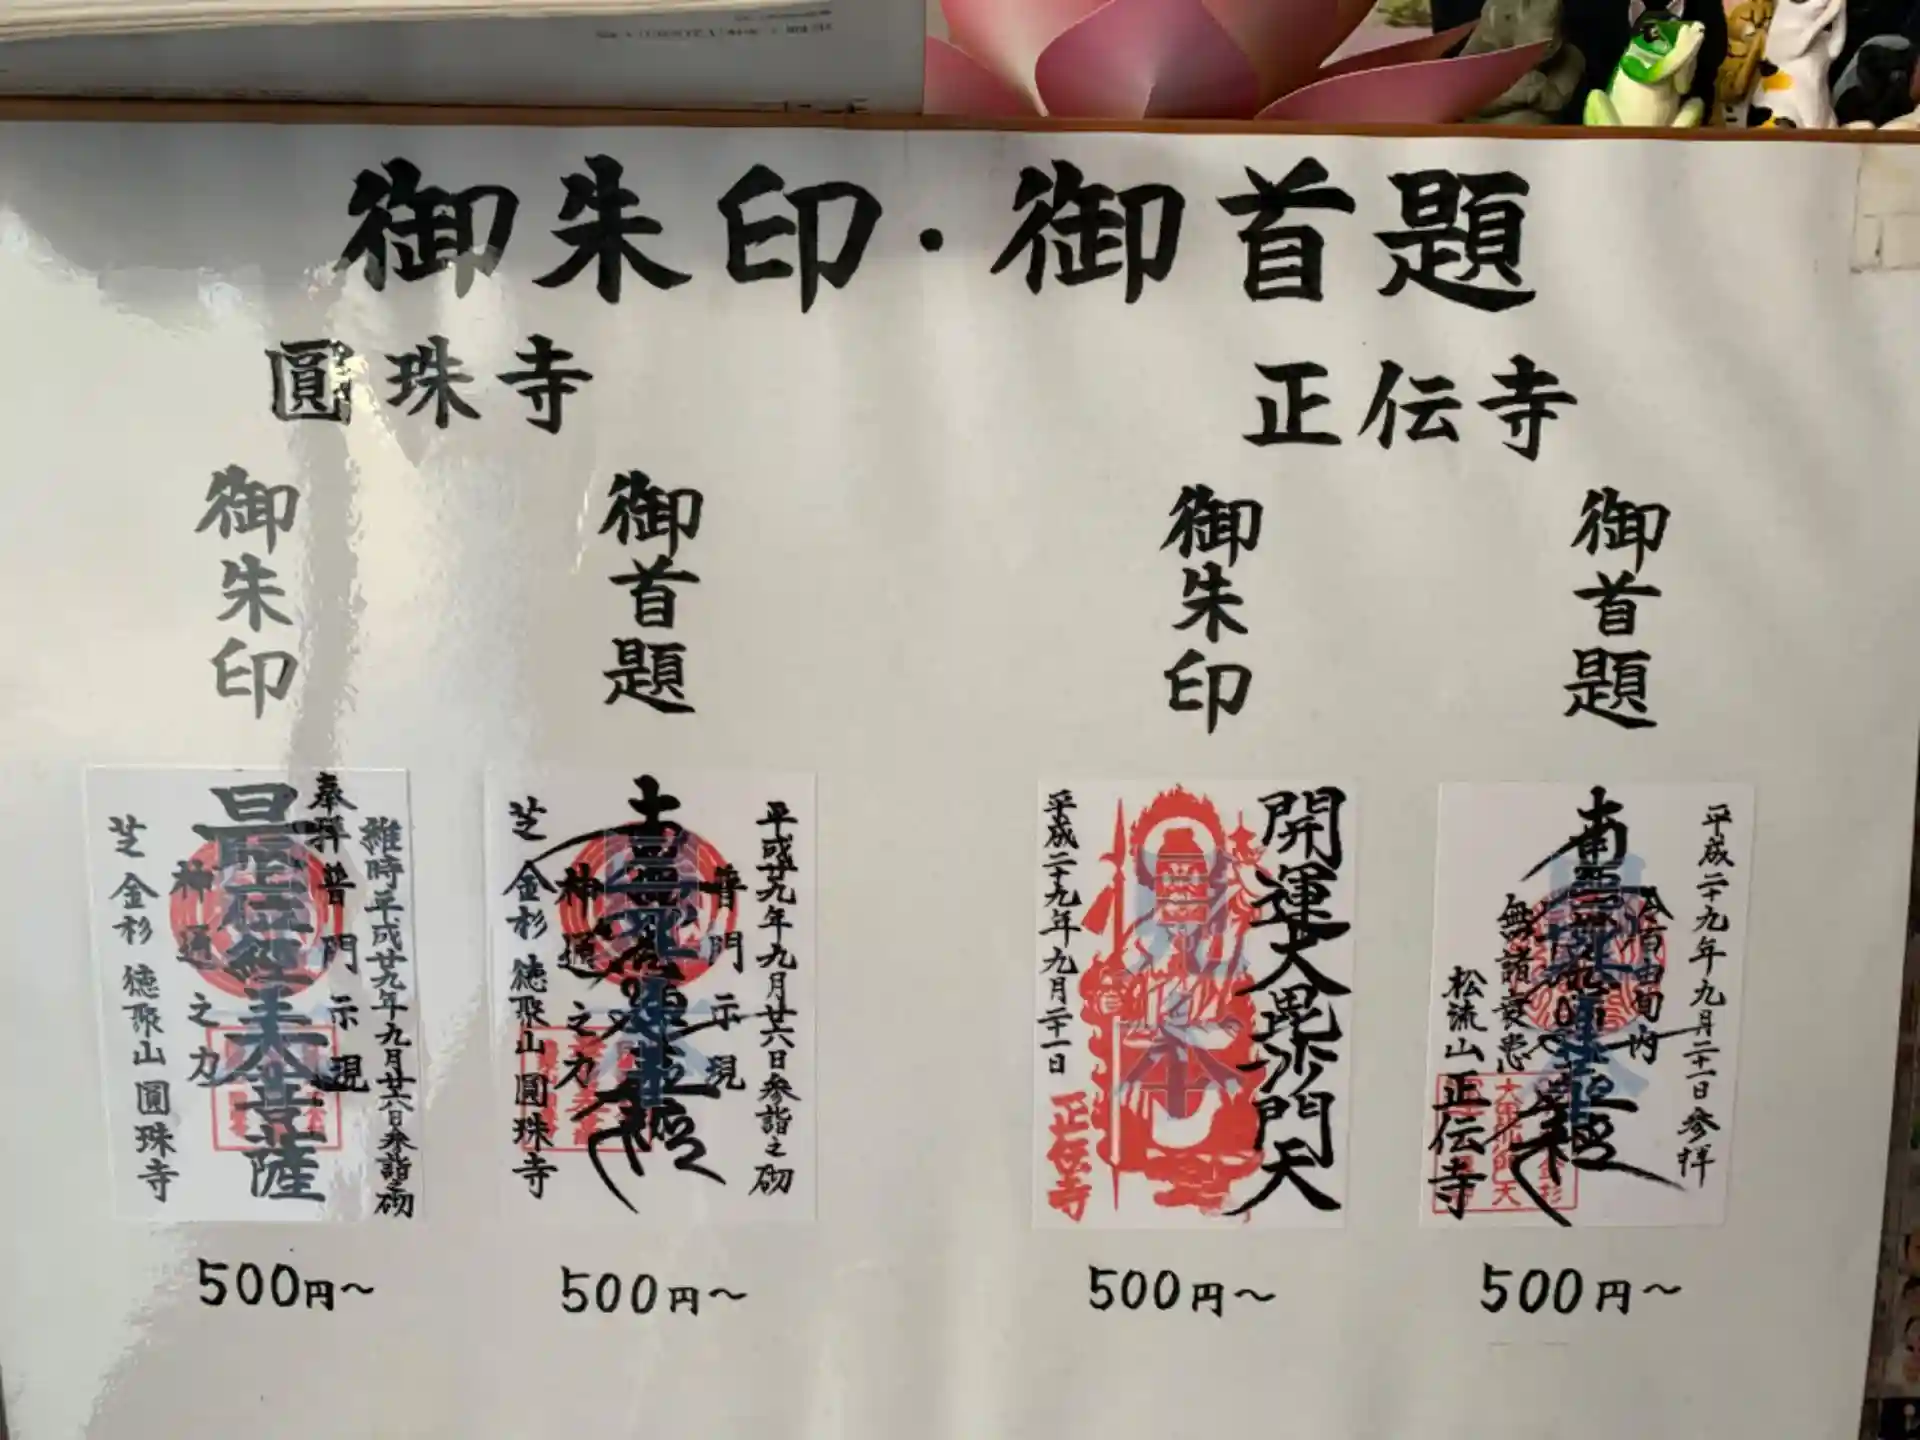 御朱印・御首題
圓珠寺
御朱印
奉拝
維時平成廿九年九月廿六日参詣之砌
普門示現
最上位経王大菩薩
神通之力
芝金杉 徳聚山圓珠寺
500円〜
御首題
平成廿九年九月廿六日参詣之砌
普門示現
南無妙法蓮華経
神通之力
芝金杉 徳聚山圓珠寺
500円〜
正伝寺
御朱印
開運大毘沙門天
平成二十九年九月二十一日
正伝寺
500円〜
御首題
平成二十九年九月二十一日参拝
令百由旬内
南無妙法蓮華経
無諸衰患
松流山正伝寺
500円〜